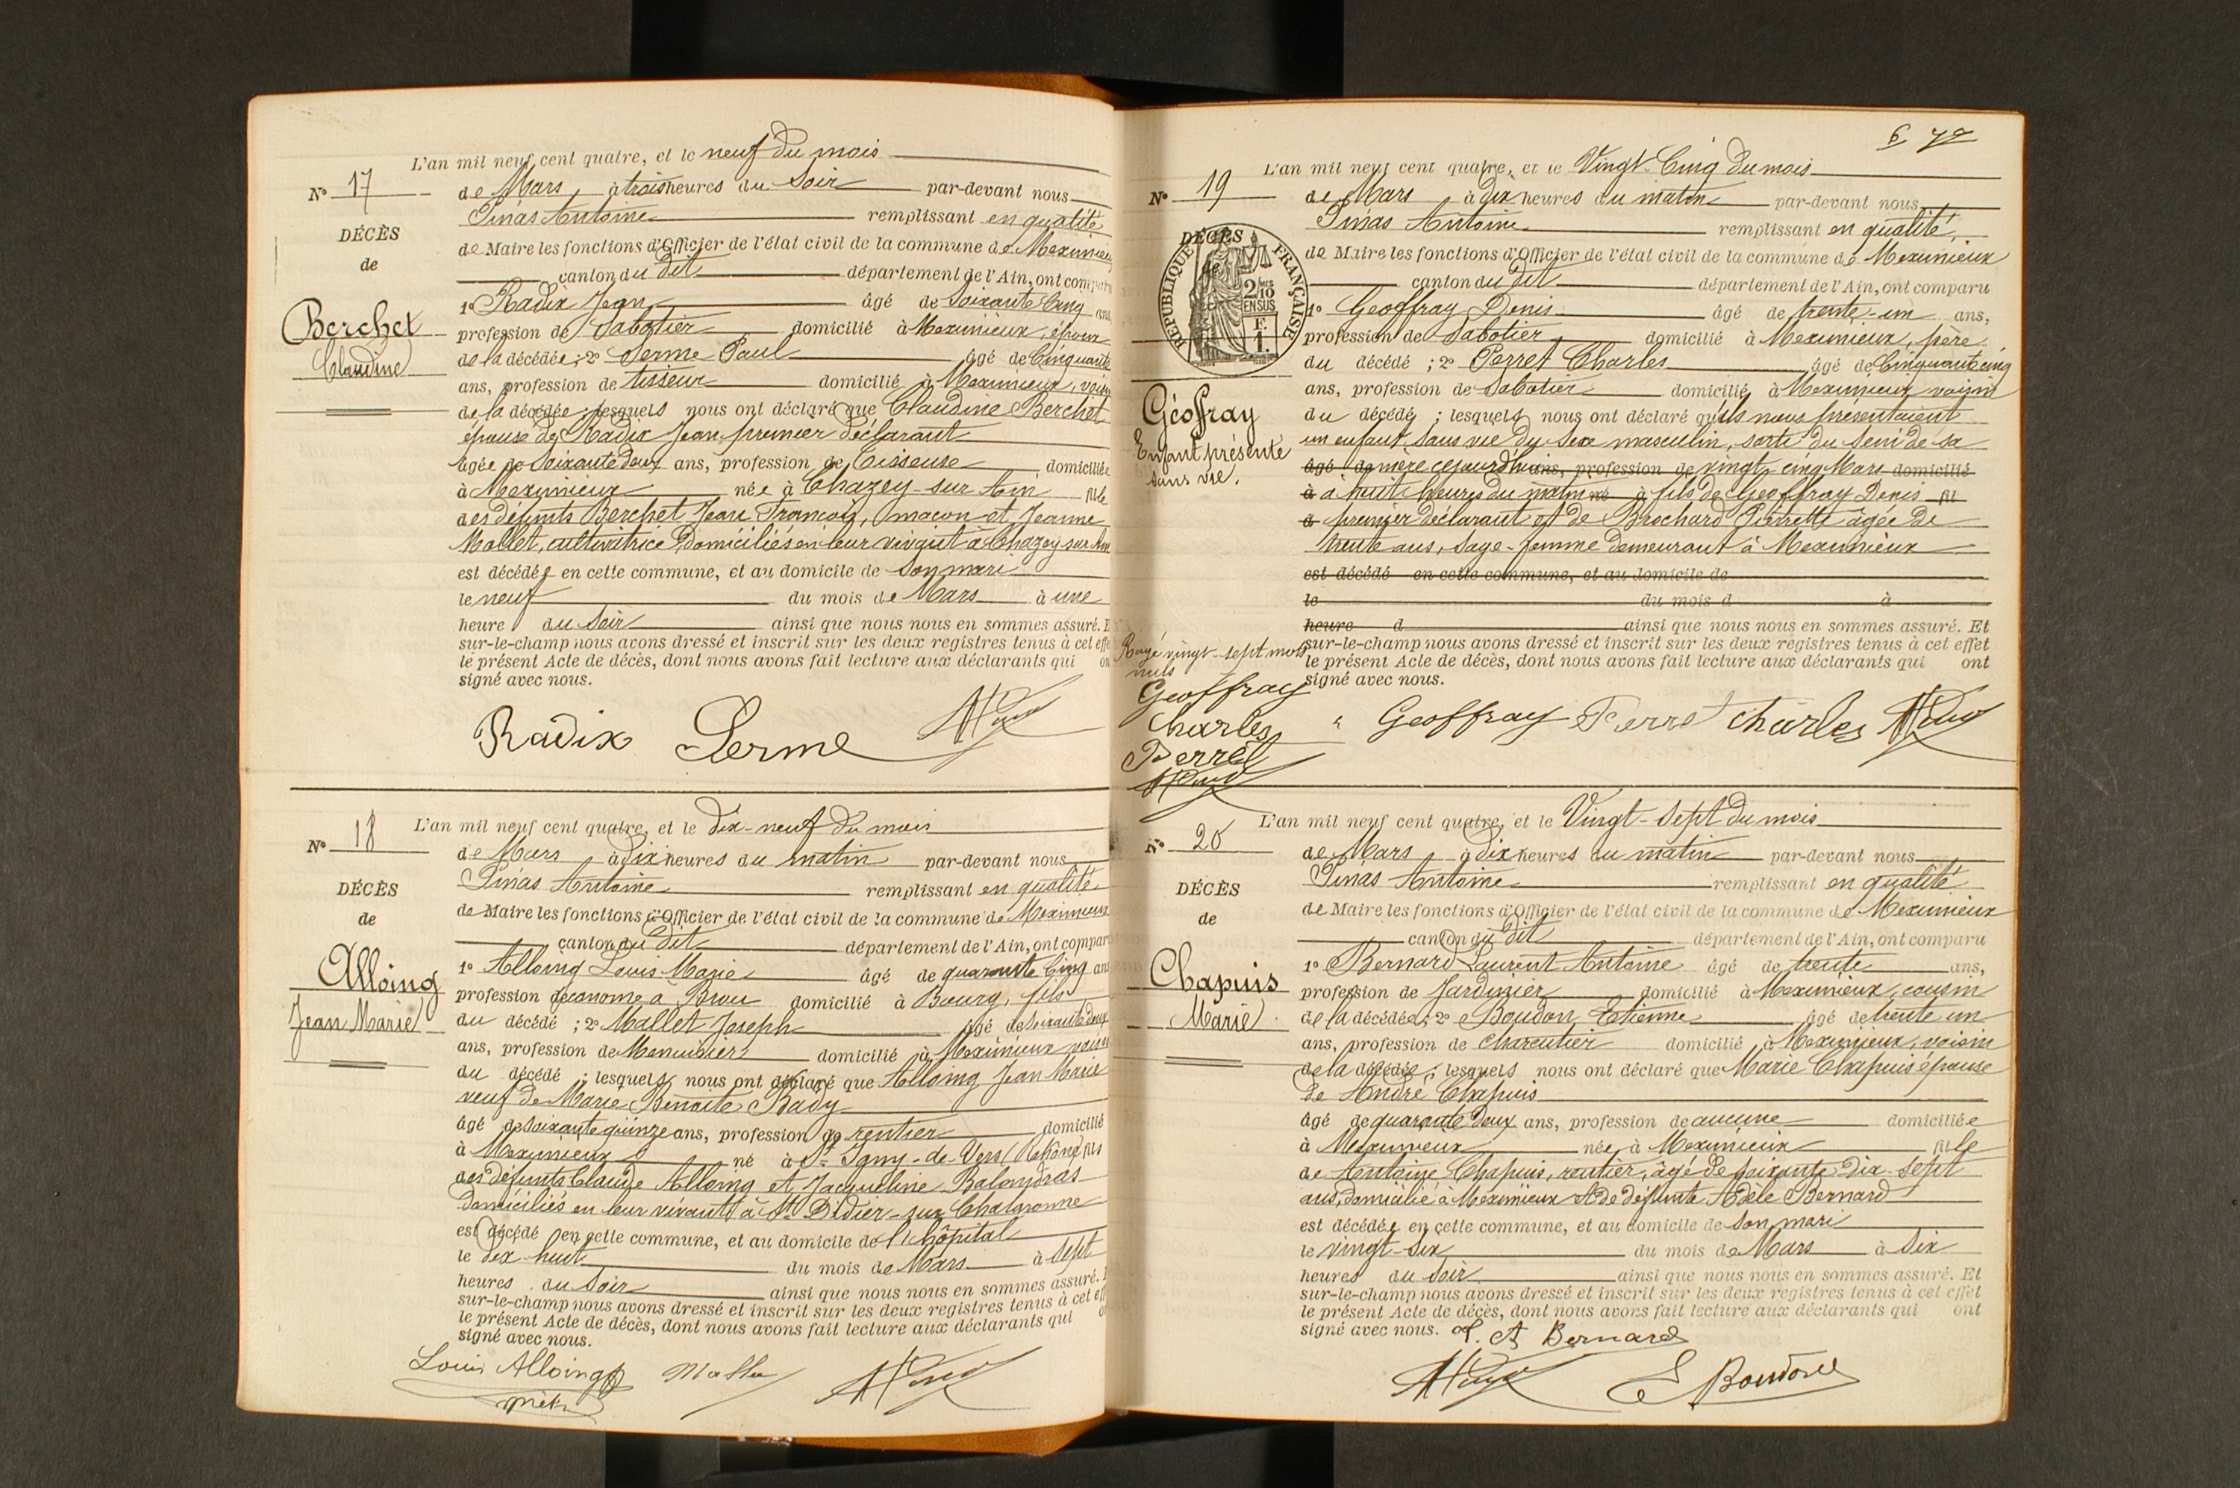 L'an mil neuf cent quatre, et le neuf du mois
N° 17
de Mars, à trois heures du Soir par-devant nous
Pinas Antoine remplissant en qualité
DÉCÈS
de Maire les fonctions d'Officier de l'état civil de la commune de Meximieux
de
canton du dit département de l'Ain, ont comparu
1° Radix Jean âgé de Soixante Cinq ans
Berchet
profession de Sabotier domicilié à Meximieux, époux
Claudine
de la décédée; 2° Serme Paul âgé de Cinquante
ans, profession de tisseur domicilié à Meximieux, voisin
de la décédée; lesquels nous ont déclaré que Claudine Berchet
épouse de Radix Jean premier déclarant
âgée de Soixante deux ans, profession de Tisseuse domiciliée
à Meximieux née à Chazey-sur-Ain fille
des défunts Berchet Jean François, maçon et Jeanne
Mallet, cultivatrice, domiciliés en leur vivant à Chazey sur Ain
est décédée en cette commune, et au domicile de son mari
le neuf du mois de Mars à une
heure du Soir ainsi que nous nous en sommes assuré. E
sur-le-champ nous avons dressé et inscrit sur les deux registres tenus à cet effe
le présent Acte de décès, dont nous avons fait lecture aux déclarants qui on
signé avec nous.
Radix Serme
L'an mil neuf cent quatre, et le dix-neuf du mois
N° 18
de Mars à dix heures du matin par-devant nous
Pinas Antoine remplissant en qualité
DÉCÈS
de Maire les fonctions d'Officier de l'état civil de la commune de Meximieux
de
canton du dit département de l'Ain, ont compar
Alloing
1° Alloing Louis Marie âgé de quarante Cinq ans
profession d'économe à Brou domicilié à Bourg, fils
Jean Marie
du décédé; 2° Mallet Joseph âgé de Soixante deux
ans, profession de Menuisier domicilié à Meximieux voisin
du décédé; lesquels nous ont déclaré que Alloing Jean Marie
veuf de Marie Benoite Bady
âgé de Soixante quinze ans, profession de rentier domicilié
à Meximieux né à St Igny-de-Vers (Rhône) fils
des défunts Claude Alloing et Jacqueline Balondras
domiciliés en leur vivant à St Didier-sur Chalaronne
est décédé en cette commune, et au domicile de l'hôpital
le dix huit du mois de Mars à Sept
heures du Soir ainsi que nous nous en sommes assuré. E
sur-le-champ nous avons dressé et inscrit sur les deux registres tenus à cet eff
le présent Acte de décès, dont nous avons fait lecture aux déclarants qui on
signé avec nous.
Louis Alloing Mallet
6
L'an mil neuf cent quatre, et le Vingt-Cinq du mois
N° 19
de Mars à dix heures du matin par-devant nous
Pinas Antoine remplissant en qualité
DÉCÈS
de
RÉPUBLIQUE FRANÇAISE
2/10 EN SUS
F.
1.
de Maire les fonctions d'Officier de l'état civil de la commune de Meximieux
canton du dit département de l'Ain, ont comparu
1° Geoffray Denis âgé de trente-un ans,
profession de Sabotier domicilié à Meximieux, père
du décédé; 2° Perret Charles âgé de Cinquante cinq
ans, profession de Sabotier domicilié à Meximieux voisin
Géofray
du décédé; lesquels nous ont déclaré qu'ils nous présentaient
Enfant présenté
un enfant sans vie du Sexe masculin, sorti du Sein de sa
sans vie.
âgé de mère cejourd'hui ans, profession de vingt cinq Mars domicilié
à à huit heures du matin né à fils de Geoffray Denis fil
d premier déclarant et de Brochard Pierrette âgée de
trente ans, Sage-femme demeurant à Meximieux
est décédé en cette commune, et au domicile de
le du mois d à
heure d ainsi que nous nous en sommes assuré. Et
sur-le-champ nous avons dressé et inscrit sur les deux registres tenus à cet effet
Rayé vingt-sept mots
le présent Acte de décès, dont nous avons fait lecture aux déclarants qui ont
nuls
signé avec nous.
Geoffray
Charles
Perret
Geoffray Perret Charles
L'an mil neuf cent quatre, et le Vingt-Sept du mois
N° 20
de Mars à dix heures du matin par-devant nous
Pinas Antoine remplissant en qualité
DÉCÈS
de Maire les fonctions d'Officier de l'état civil de la commune de Meximieux
de
canton du dit département de l'Ain, ont comparu
Chapuis
1° Bernard Laurent Antoine âgé de trente ans,
profession de Jardinier domicilié à Meximieux, cousin
Marie
de la décédée; 2° Boudon Etienne âgé de trente un
ans, profession de charcutier domicilié à Meximieux, voisin
de la décédée; lesquels nous ont déclaré que Marie Chapuis épouse
de André Chapuis
âgé de quarante deux ans, profession de aucune domiciliée
à Meximieux née à Meximieux fille
de Antoine Chapuis, rentier, âgé de soixante dix-sept
ans, domicilié à Meximieux et de défunte Adèle Bernard
est décédée en cette commune, et au domicile de son mari
le vingt-six du mois de Mars à Six
heures du Soir ainsi que nous nous en sommes assuré. Et
sur-le-champ nous avons dressé et inscrit sur les deux registres tenus à cet effet
le présent Acte de décès, dont nous avons fait lecture aux déclarants qui ont
signé avec nous. L. A Bernard
E Boudon